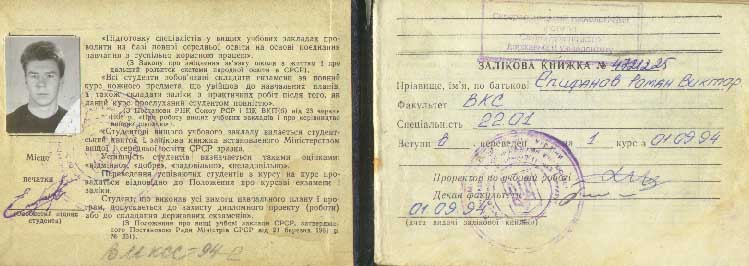 «Підготовку спеціалістів у вищих учбових закладах про-
водити на базі повної середньої освіти на основі поєднання
навчання з суспільно корисною працею».
(З Закону про зміцнення зв'язку школи з життям і про
дальший розвиток системи народної освіти в СРСР).
«Всі студенти зобов'язані складати екзамени за повний
курс кожного предмета, що увійшов до навчальних планів,
і також складати заліки з практичних робіт після того, як
даний курс прослухання студентом повністю».
(З Постанови РНК Союзу РСР і ЦК ВКП(б) від 23 червня
«Про роботу вищих учбових закладів і про керівництво
«Студентові вищого учбового закладу видається студент-
ський квиток і залікова книжка встановленого Міністерством
вищої і середньої освіти СРСР зразка.
Успішність студентів визначається такими оцінками:
«відмінно», «добре», «задовільно», «незадовільно».
Переведення успіваючих студентів з курсу на курс про-
вадиться відповідно до Положення про курсові екзамени і
заліки.
Студент, що виконав усі вимоги навчального плану і про-
грам, допускається до захисту дипломного проекту (роботи)
або до складання державних екзаменів».
(З Положення про вищі учбові заклади СРСР, затвердже-
ного Постановою Ради Міністрів СРСР від 21 березня 1961 р.
№ 251).
Місце
печатки
(Особистий підпис
студента)
ВМКСС-94-2
ЗАЛІКОВА КНИЖКА №
Прізвище, ім'я, по батькові Епифанов Роман Виктор
Факультет ВКС
Спеціальність 2201
Вступи в переведен на 1 курс а 01.09.94
Проректор по учбовій роботі
Декан факультету
01.09.94
(дата видачі залікової книжки)